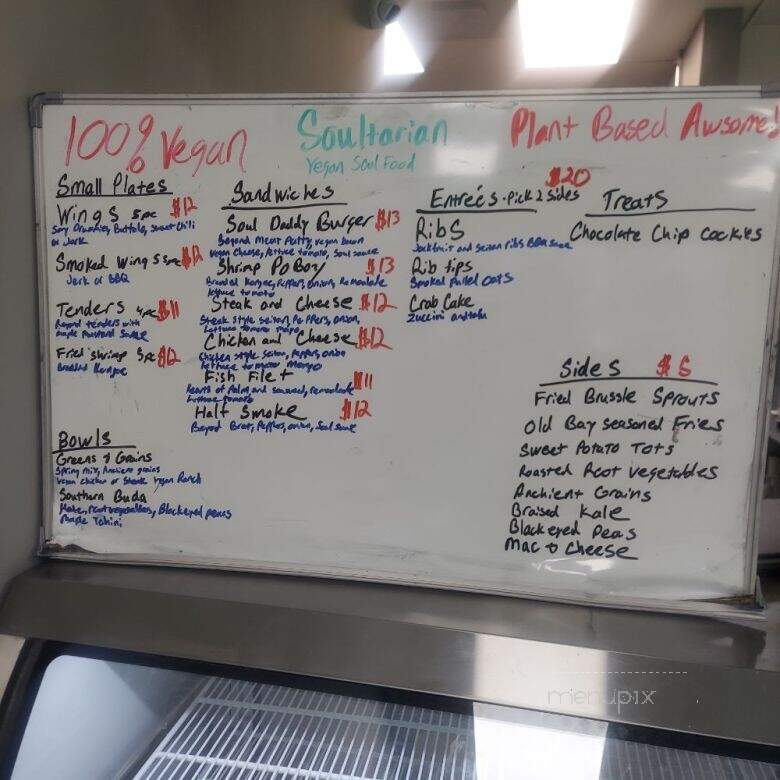 100% Vegan
Soultarian
Vegan Soul Food
Plant Based Awsome!
Small Plates
Wings 5pc $12
Soy Drumies, Buffalo, sweet chili
or Jerk
Smoked Wings 5pc $12
Jerk or BBQ
Tenders 4pc $11
Beyond tenders with
maple mustard sauce
Fried shrimp 5pc $12
Breaded Konjac
Bowls
Greens & Grains
Spring mix, Ancient grains
vegan chicken or steak vegan Ranch
Southern Buda
Kale, root vegetables, Blackeyed peas
Maple Tahini
Sandwiches
Soul Daddy Burger $13
Beyond Meat Patty, vegan bacon
vegan cheese, lettuce tomato, soul sauce
Shrimp Po Boy $13
Breaded Konjac, Peppers, onion, Remoulade
lettuce tomato
Steak and Cheese $12
Steak style seitan, Peppers, onion,
Lettuce Tomato mayo
Chicken and Cheese $12
Chicken style seitan, Peppers, onion
lettuce tomato mayo
Fish Filet $11
Hearts of Palm and seaweed, remoulade
Lettuce tomato
Half Smoke $12
Beyond Brat, Peppers, onion, Soul sauce
$20
Entreés - Pick 2 sides
Ribs
Jackfruit and Seitan ribs BBQ sauce
Rib tips
Smoked Pulled oats
Crab Cake
Zuccini and tofu
Treats
Chocolate Chip cookies
Sides $5
Fried Brussle Sprouts
Old Bay seasoned Fries
Sweet Potato Tots
Roasted Root vegetables
Anchient Grains
Braised Kale
Blackeyed Peas
Mac & Cheese
menupix